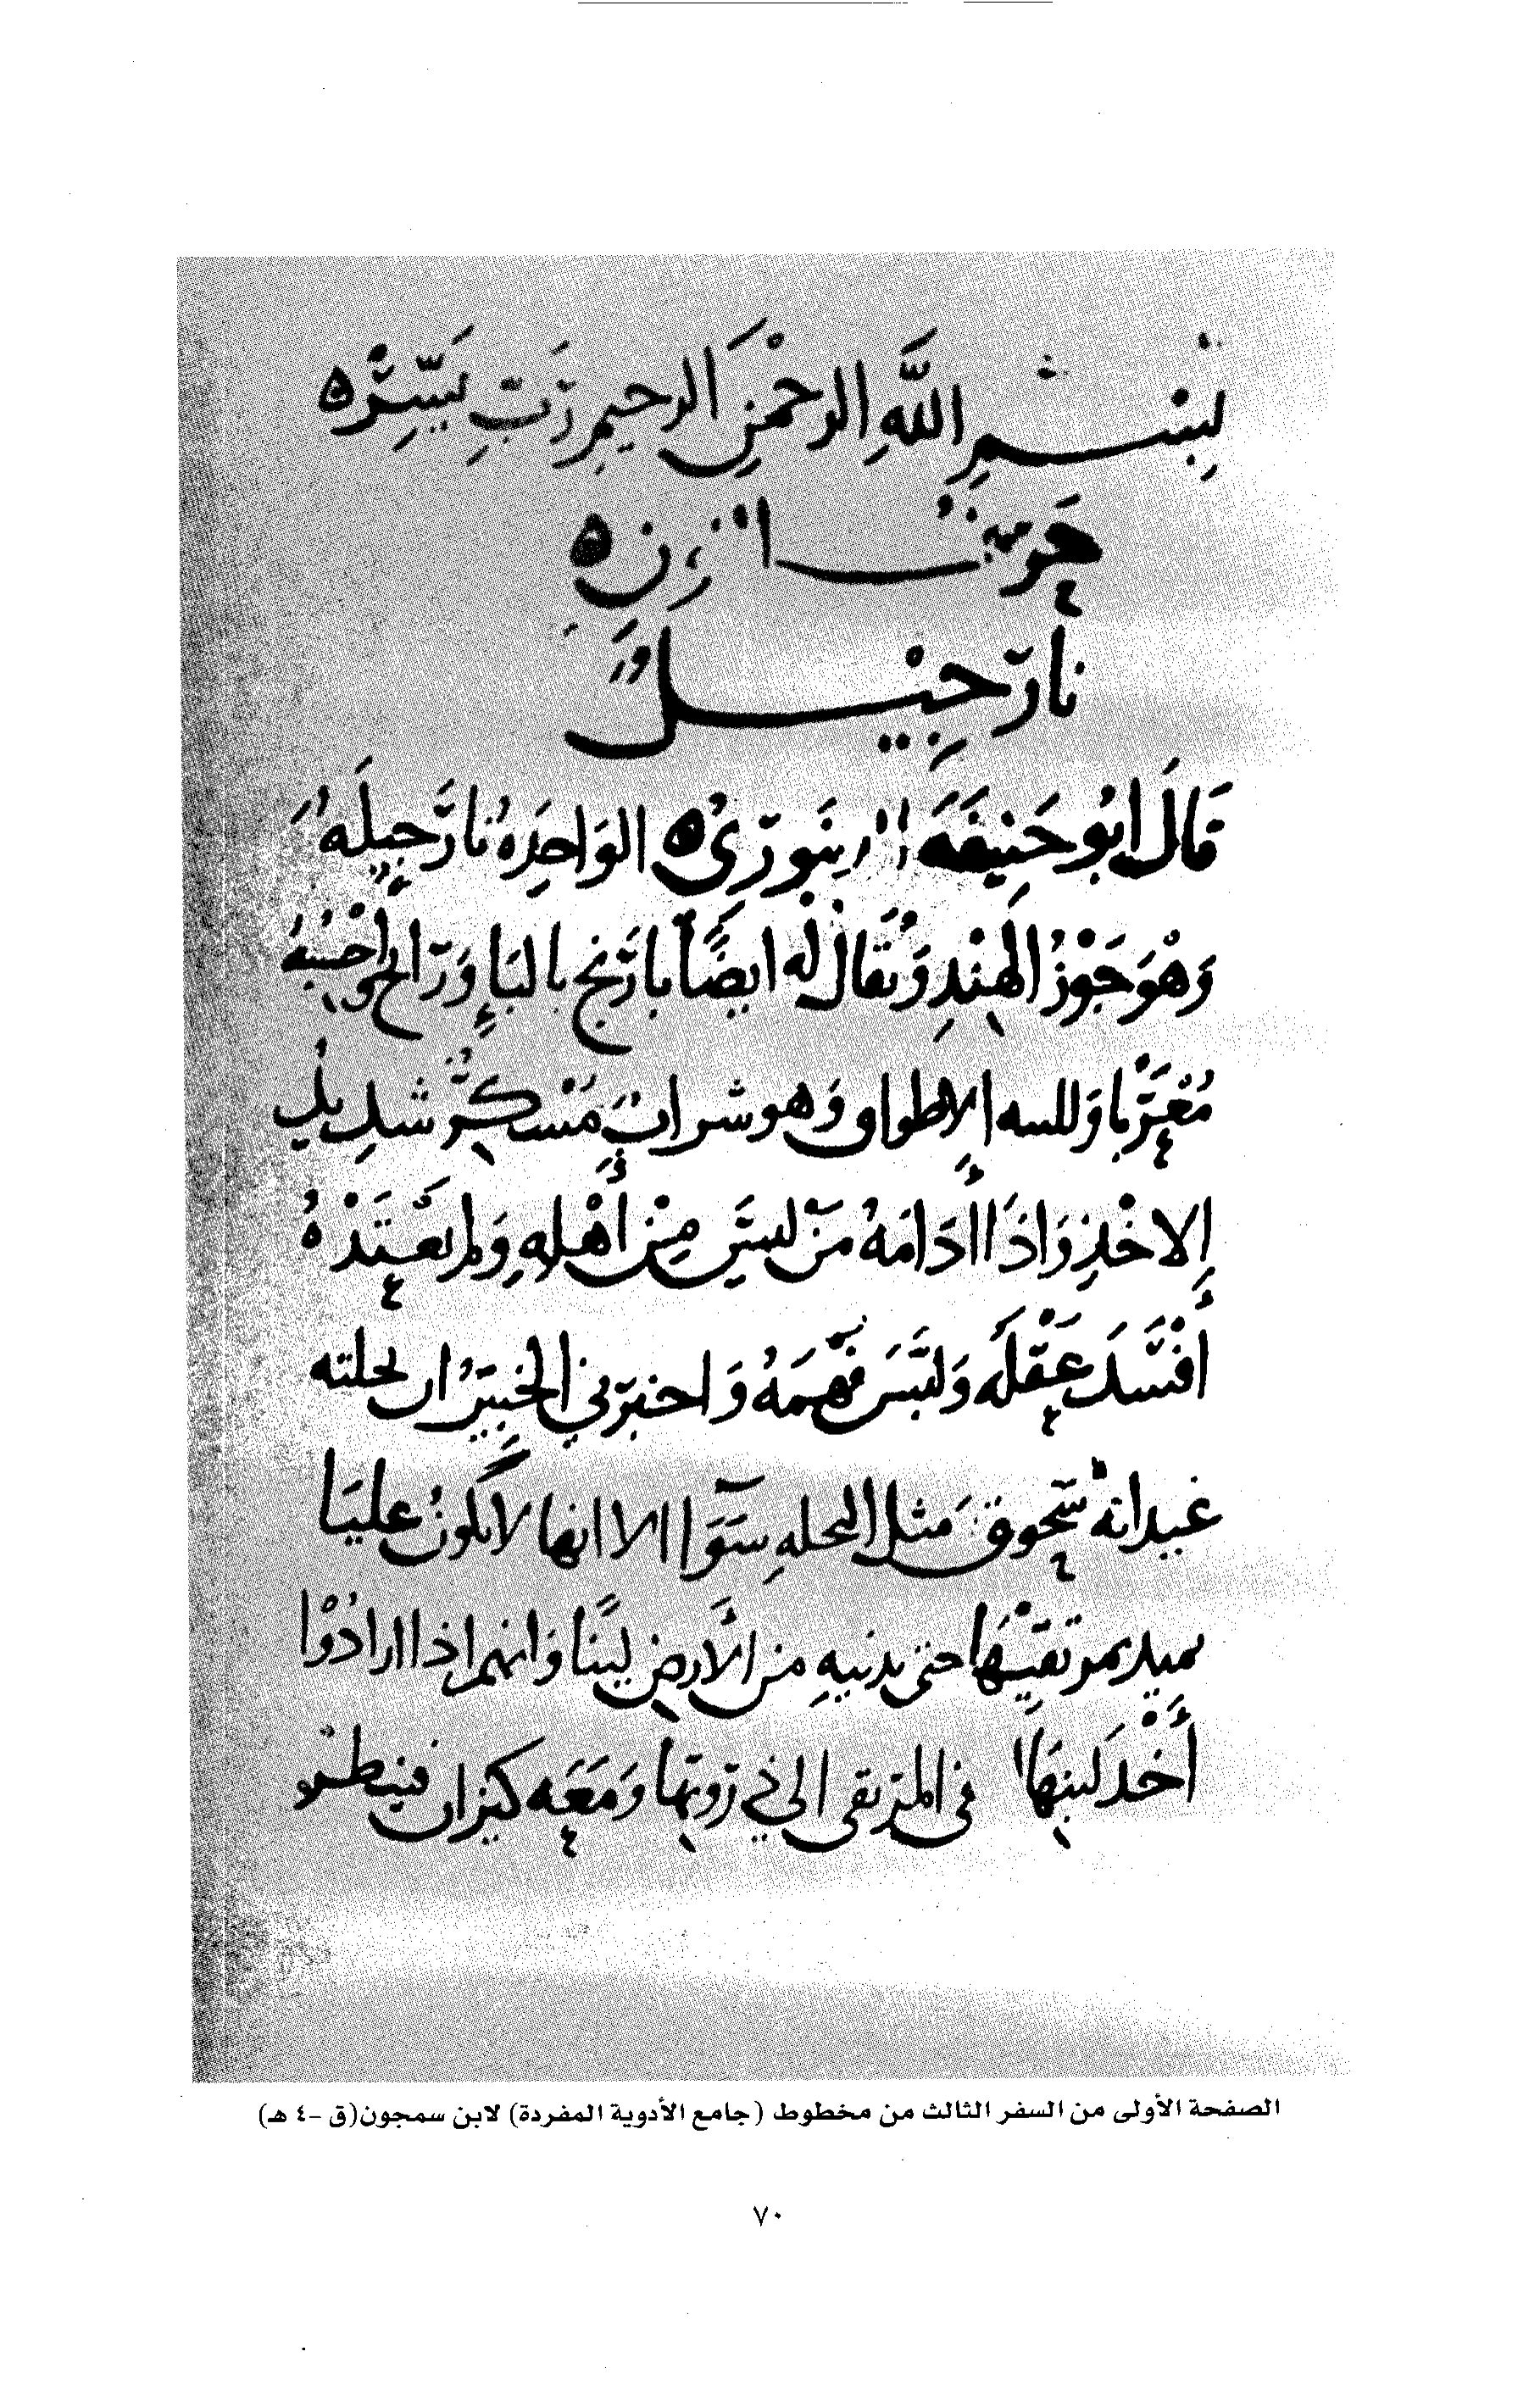 بِسْمِ اللَّهِ الرحمنِ الرحيمِ رَبِّ يَسِّرْ ه
حَرْفُ ا ن ه
نارَجِيلٌ
قَالَ ابُو حَنِيفَةَ الدينَوَرِيُّ ه الوَاحِدَهُ نارَجِيلَهُ
وَهْوَ جَوْزُ الهِنْدِ وَيُقالُ لهُ ايضًا بارَنج بالبَاءِ وَرَ احْسِبهُ
مُعَرَّبا وَللبنه الإطواق وَهو شرابٌ مُسكِرٌ شديدُ
الاخْذِ وَاذَا ادَامَهُ مَنْ لَيسَ مِنْ أَهْلِهِ وَلم يَعْتَدْهُ
أَفْسَدَ عَقْلَهُ وَلَبَّسَ فَهْمَهُ وَاخبَرَني الخَبيرُ ان نخلته
غير انهُ سَحوق مَثل النخلهِ سَوَا الا انها لا تكونُ علْيَا
تميد بمرتقيْهَا حتى تدنيهِ من الأَرضِ ليْنًا وَانهم اذا ارادُوْا
أَخْذ لَبنِهَا المرتقى الى ذروتها وَمَعَه كيزان فينظر
الصفحة الأولى من السفر الثالث من مخطوط (جامع الأدوية المفردة) لابن سمجون(ق -٤ هـ)
٧٠